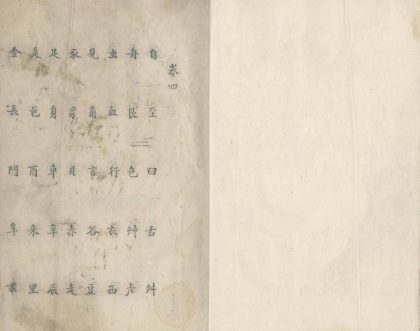 卷四
自至臼舌舛
舟艮色艸虍
虫血行衣西
見角言谷豆
豕豸貝赤走
足身車辛辰
辵邑酉釆里
金長門阜隶